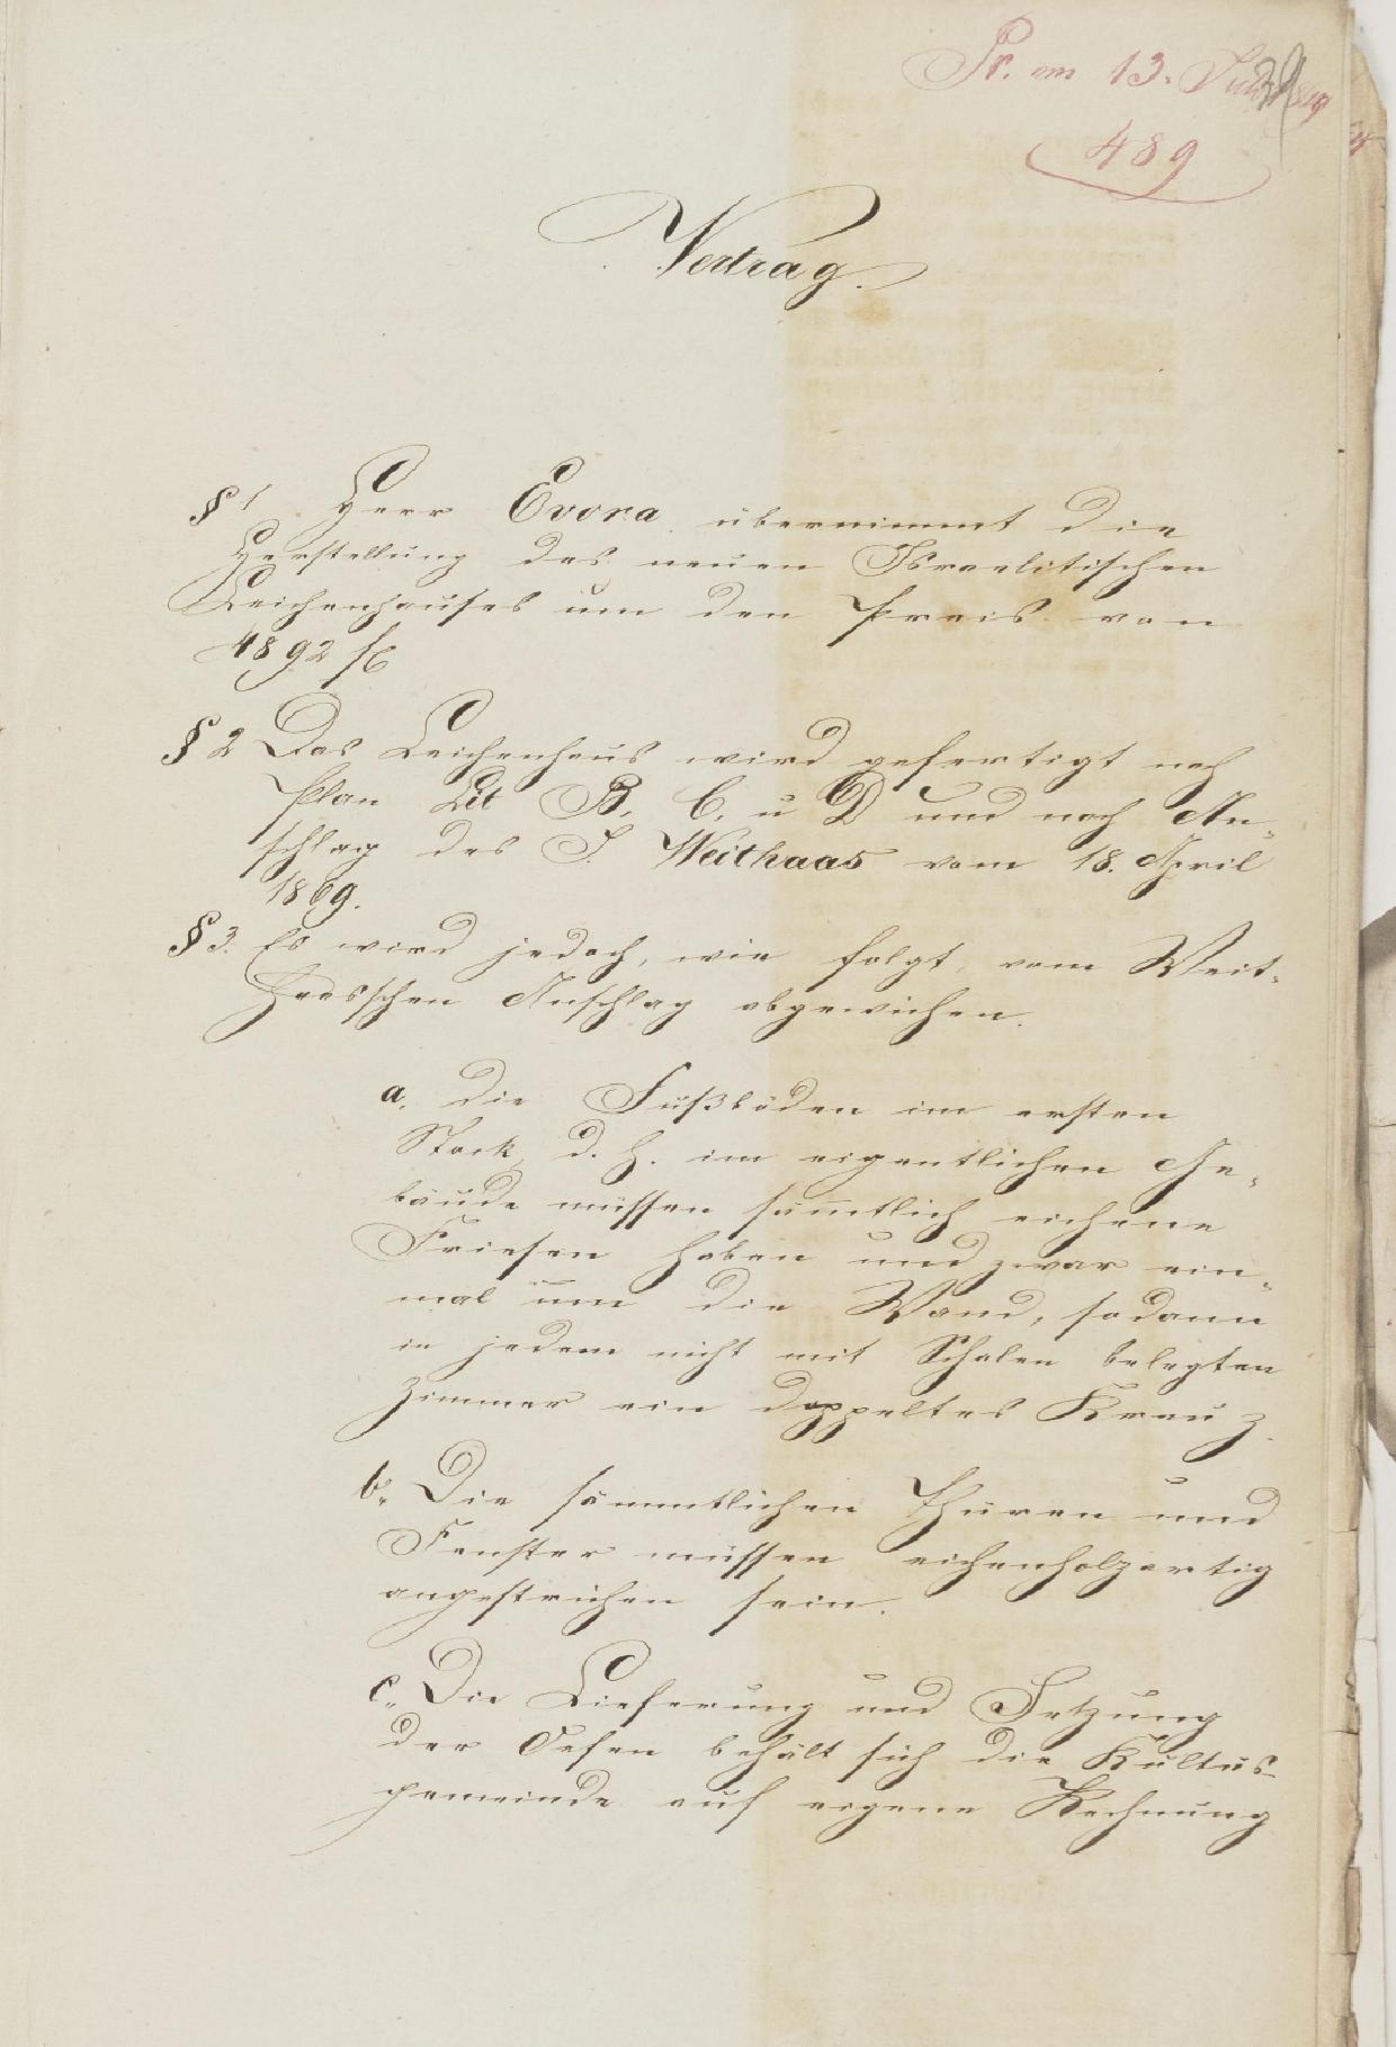 Pr. am 13. Juli 1869
489
Vertrag.
§ 1 Herr Evora übernimmt die
Herstellung des neuen Israelitischen
Leichenhauses um den Preis von
4892 fl
§ 2 Das Leichenhaus wird gefertigt nach
Plan Lit B, C, u D und nach An-
schlag des J. Weithaas vom 18. April
1869.
§ 3. Es wird jedoch, wie folgt, vom Weit-
haasschen Anschlag abgewichen.
a. Die Fußböden im ersten
Stock, d. h. im eigentlichen Ge-
bäude müssen sämtlich eichene
Friesen haben und zwar ein-
mal um die Wand, sodann
in jedem nicht mit Schalen belegten
Zimmer ein doppeltes Kreuz.
b. Die sämmtlichen Thüren und
Fenster müssen eichenholzartig
angestrichen sein.
c. Die Lieferung und Setzung
der Oefen behält sich die Kultus-
gemeinde auf eigene Rechnung